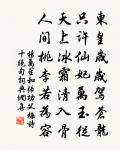 東皇歲歲駕蒼龍
只許仙妃萬玉從
天上冰霜清入骨
人間桃李若為容
楊萬里和張功父梅詩
十絕句詞典網